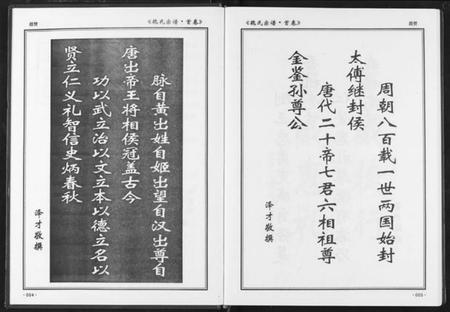 题赞
《魏氏宗谱·首卷》
脉自黄出姓自姬出望自汉出尊自
唐出帝王将相侯冠盖古今
功以武立治以文立本以德立名以
贤立仁义礼智信史炳春秋
泽才敬撰
·004·
《魏氏宗谱·首卷》
题赞
周朝八百载一世两国始封
太傅继封侯
唐代二十帝七君六相祖尊
金鉴孙尊公
泽才敬撰
·005·